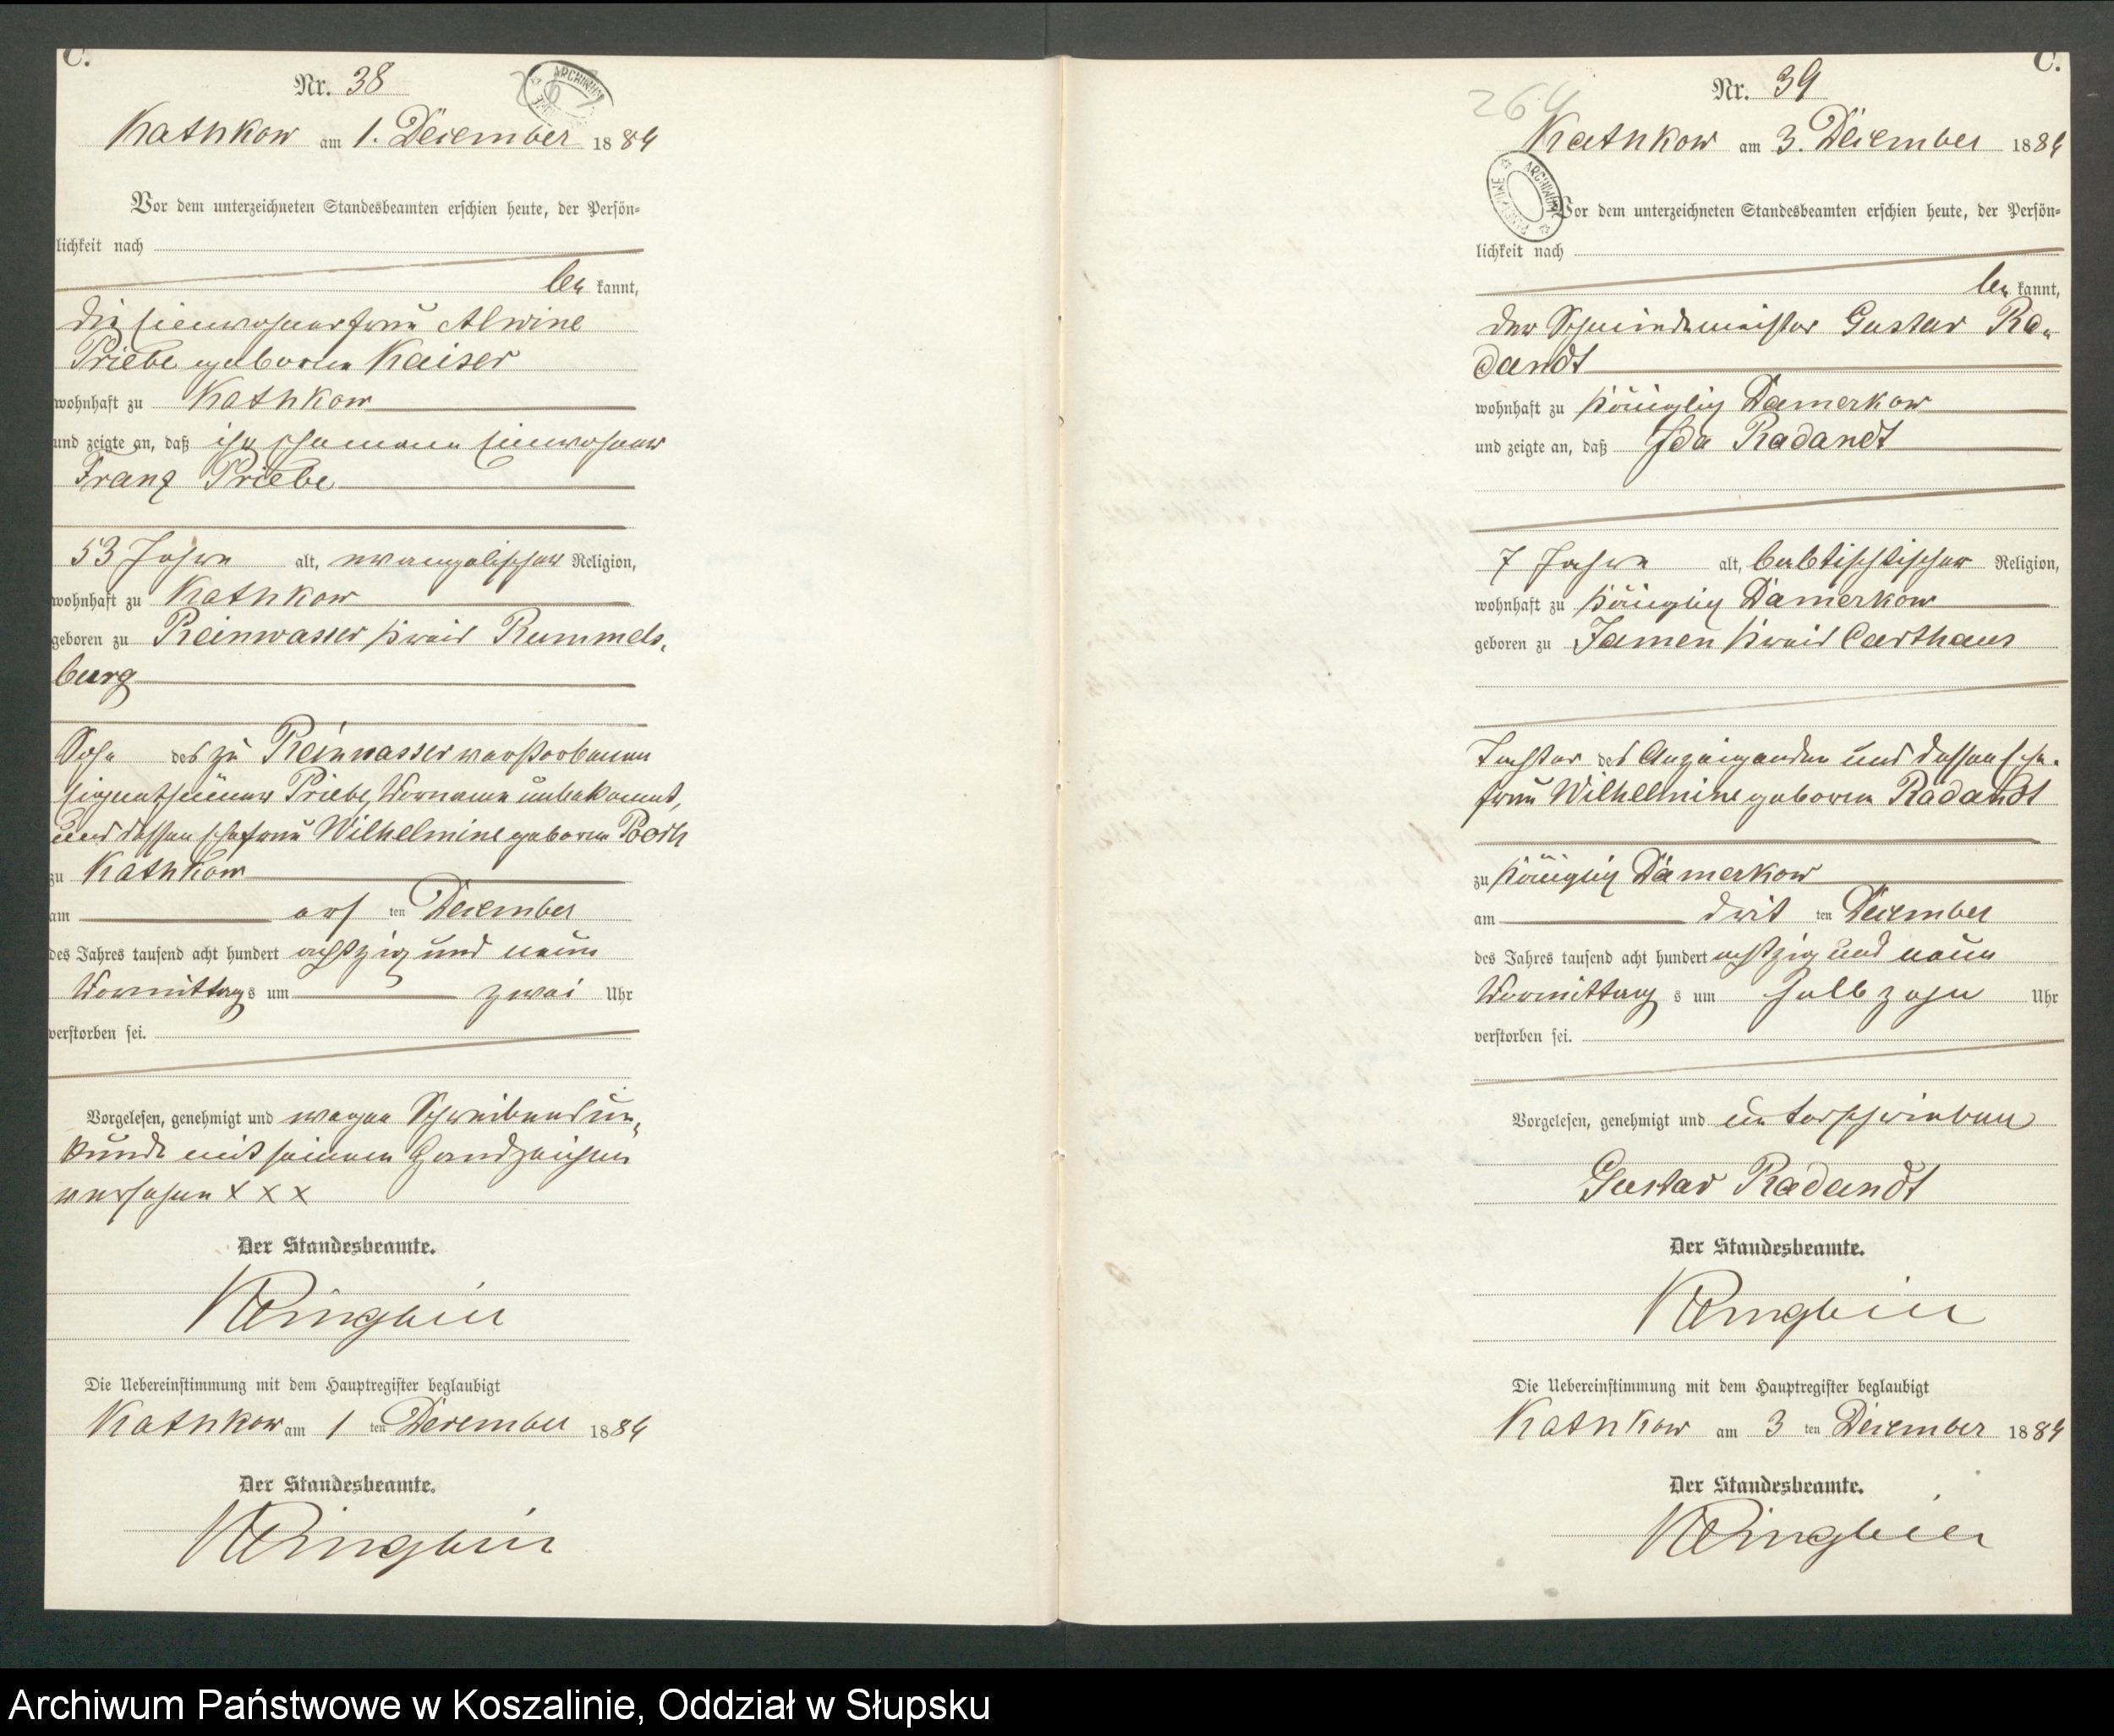 C.
Nr. 38
Kathkow am 1. December 1889
Vor dem unterzeichneten Standesbeamten erschien heute, der Persön-
lichkeit nach
be kannt,
die Einwohnerfrau Alwine
Priebe geborene Kaiser
wohnhaft zu Kathkow
und zeigte an, daß ihr Ehemann Einwohner
Franz Priebe
53 Jahre alt, evangelischer Religion,
wohnhaft zu Kathkow
geboren zu Reinwasser Kreis Rummels-
burg
Sohn des zu Reinwasser verstorbenen
Eigenthümer Priebe, Vorname unbekannt,
und dessen Ehefrau Wilhelmine geborene
zu Kathkow
am ten December
des Jahres tausend acht hundert achtzig und neun
Vormittags um zwei Uhr
verstorben sei.
Vorgelesen, genehmigt und wegen Schreibensun-
kunde mit seinem Handzeichen
versehen x x x
Der Standesbeamte.
Die Uebereinstimmung mit dem Hauptregister beglaubigt
Kathkow am 1 ten December 1889
Der Standesbeamte.
C.
264
Nr. 39
Kathkow am 3. December 1889
Vor dem unterzeichneten Standesbeamten erschien heute, der Persön-
lichkeit nach
be kannt,
der Schmiedemeister Gustav Ra-
dandt
wohnhaft zu Königlich Damerkow
und zeigte an, daß Ida Radandt
7 Jahre alt, babtistischer Religion,
wohnhaft zu Königlich Damerkow
geboren zu Jamen Kreis Carthaus
Tochter des Anzeigenden und dessen Ehe-
frau Wilhelmine geborene Radandt
zu Königlich Damerkow
am drit ten December
des Jahres tausend acht hundert achtzig und neun
Vormittag s um halb zehn Uhr
verstorben sei.
Vorgelesen, genehmigt und unterschrieben
Gustav Radandt
Der Standesbeamte.
Die Uebereinstimmung mit dem Hauptregister beglaubigt
Kathkow am 3 ten December 1889
Der Standesbeamte.
Archiwum Państwowe w Koszalinie, Oddział w Słupsku